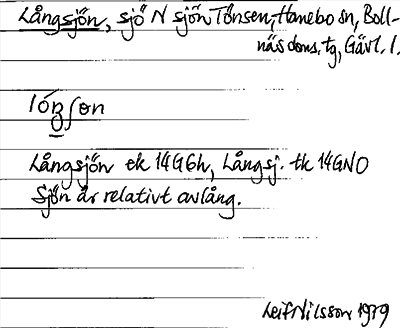 Långsjön, sjö N sjön Tönsen, Hanebo sn, Boll-
näs doms. tg, Gävl. l.
lóŋʃon
Långsjön ek 14G6h, Långsj. tk 14GNO
Sjön är relativt avlång.
Leif Nilsson 1979